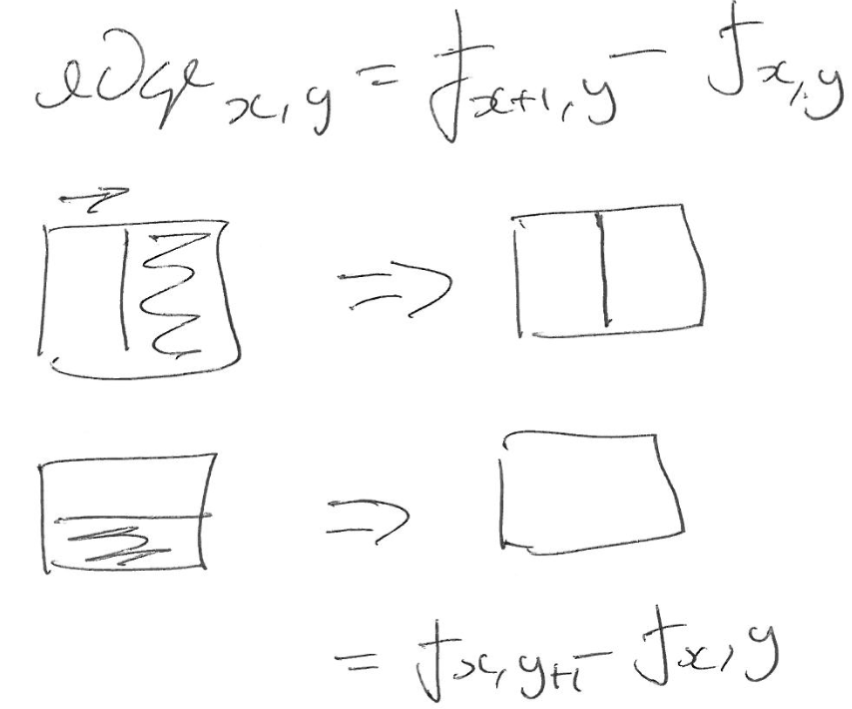 edge x,y = f x+1,y - f x,y
⇒
⇒
= f x,y+1 - f x,y